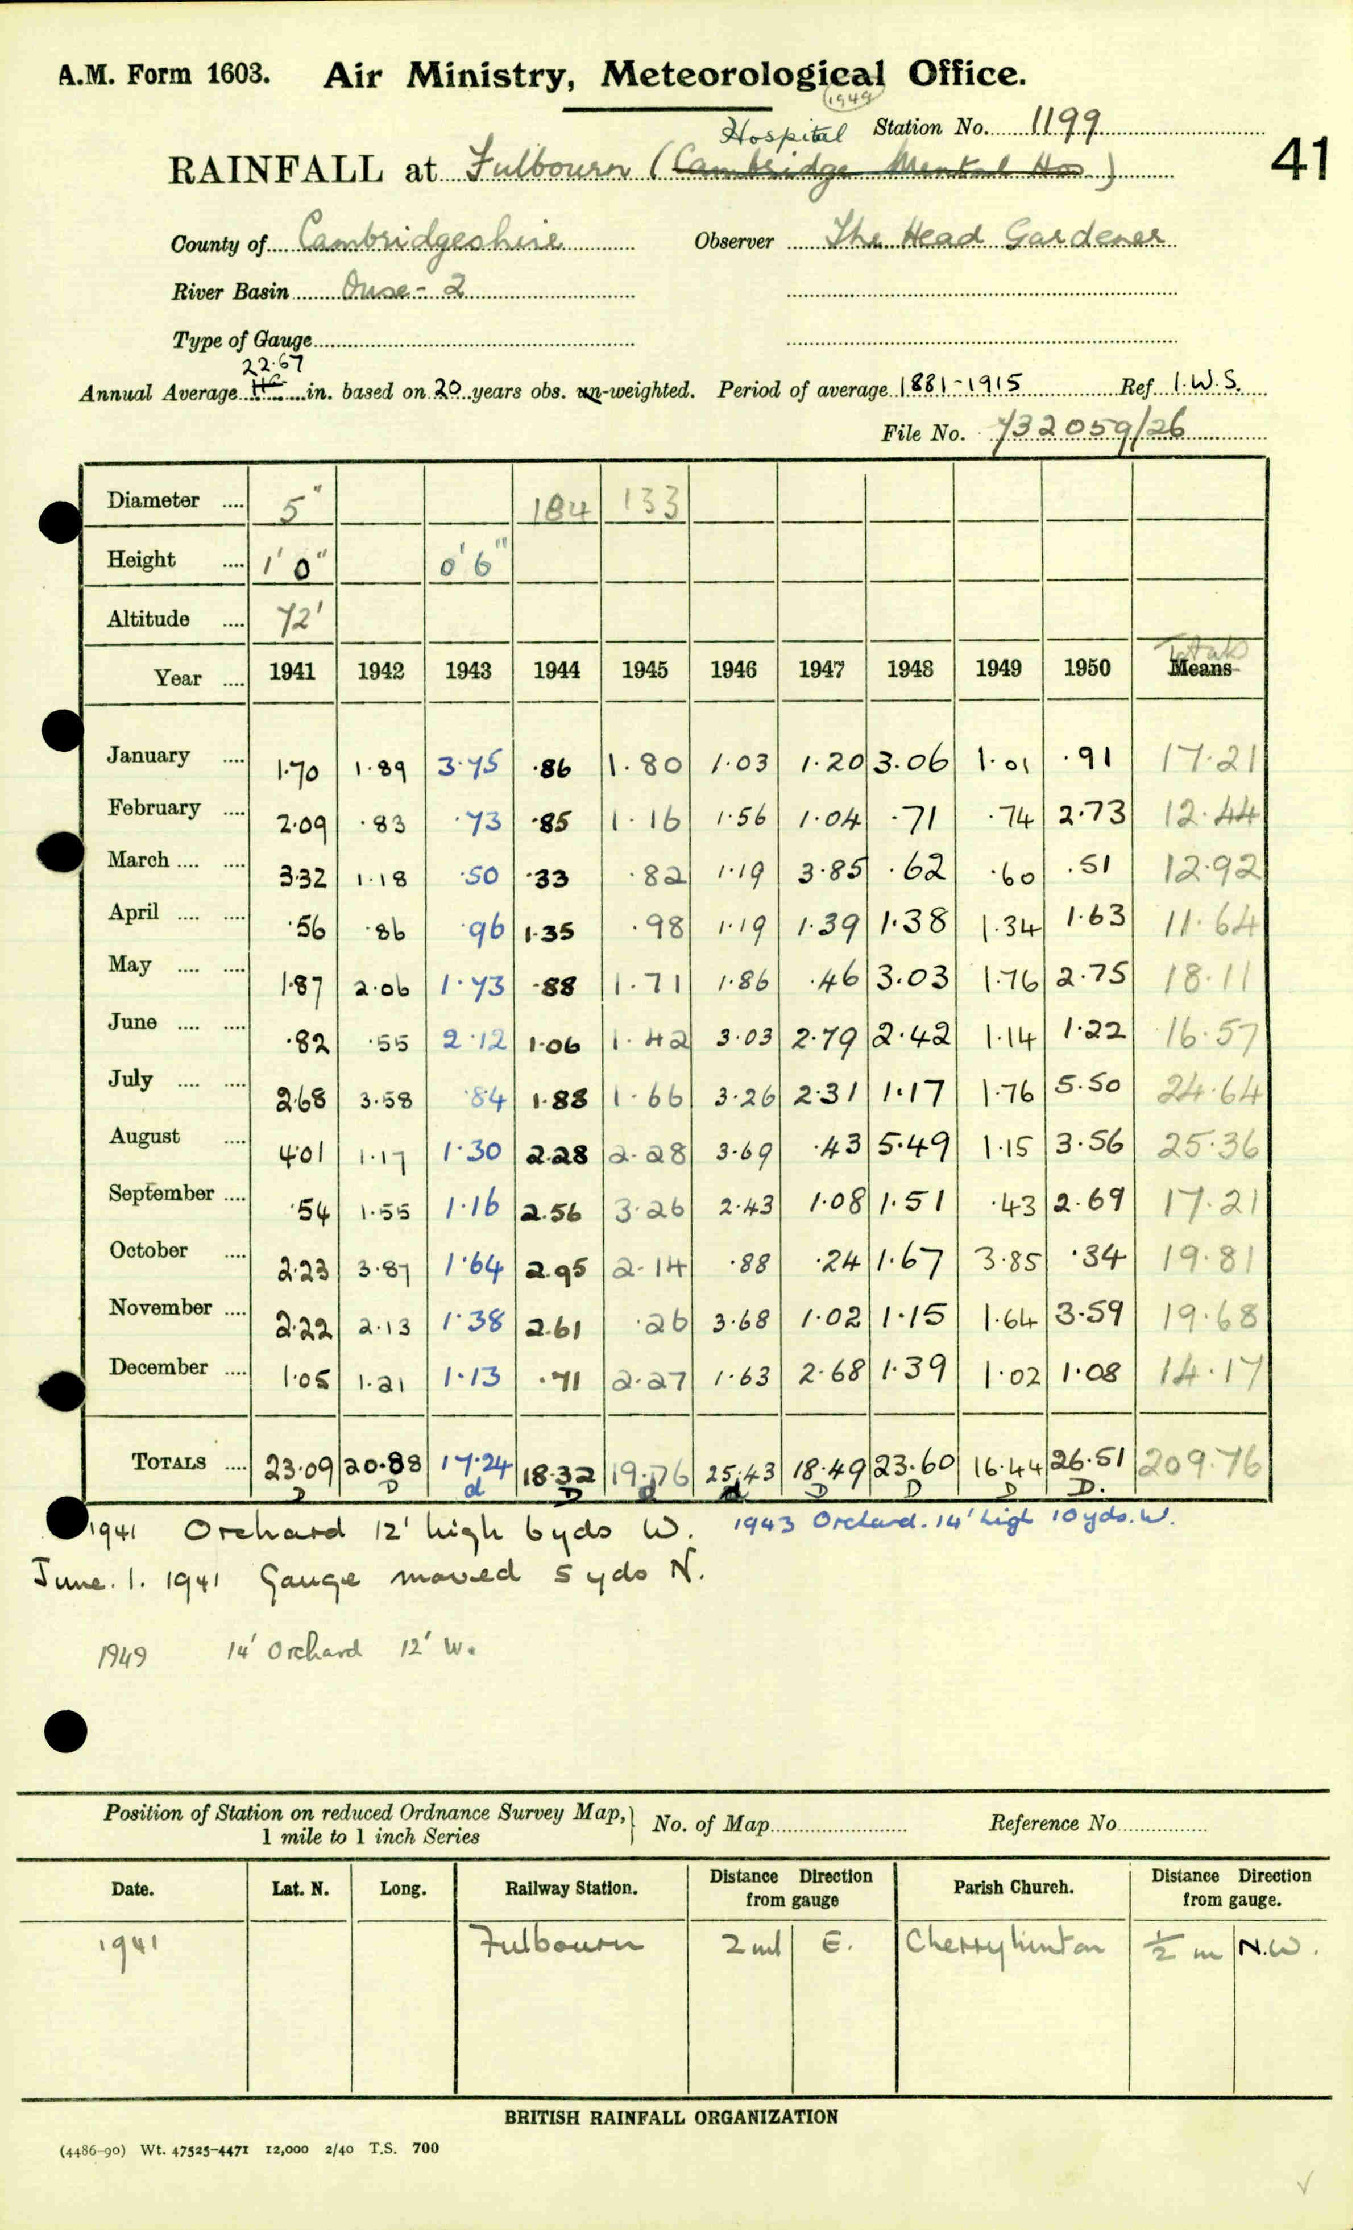 A.M. Form 1603. Air Ministry, Meteorological Office.
1949
Hospital Station No. 1199
RAINFALL at Fulbourn (Cambridge Mental Hos) 41
County of Cambridgeshire Observer The Head Gardener
River Basin Ouse - 2
Type of Gauge
22.67
Annual Average in. based on 20 years obs. un-weighted. Period of average 1881-1915 Ref. I.W.S.
File No. 732059/26
Diameter .... 5" 184 133
Height .... 1' 0" 0' 6"
Altitude .... 72'
Totals
Year .... 1941 1942 1943 1944 1945 1946 1947 1948 1949 1950 Means
January .... 1.70 1.89 3.75 .86 1.80 1.03 1.20 3.06 1.01 .91 17.21
February .... 2.09 .83 .73 .85 1.16 1.56 1.04 .71 .74 2.73 12.44
March .... .... 3.32 1.18 .50 .33 .82 1.19 3.85 .62 .60 .51 12.92
April .... .... .56 .86 .96 1.35 .98 1.19 1.39 1.38 1.34 1.63 11.64
May .... .... 1.87 2.06 1.73 .88 1.71 1.86 .46 3.03 1.76 2.75 18.11
June .... .... .82 .55 2.12 1.06 1.42 3.03 2.79 2.42 1.14 1.22 16.57
July .... .... 2.68 3.58 .84 1.88 1.66 3.26 2.31 1.17 1.76 5.50 24.64
August .... 4.01 1.17 1.30 2.28 2.28 3.69 .43 5.49 1.15 3.56 25.36
September .... .54 1.55 1.16 2.56 3.26 2.43 1.08 1.51 .43 2.69 17.21
October .... 2.23 3.87 1.64 2.95 2.14 .88 .24 1.67 3.85 .34 19.81
November .... 2.22 2.13 1.38 2.61 .26 3.68 1.02 1.15 1.64 3.59 19.68
December .... 1.05 1.21 1.13 .71 2.27 1.63 2.68 1.39 1.02 1.08 14.17
TOTALS .... 23.09 20.88 17.24 18.32 19.76 25.43 18.49 23.60 16.44 26.51 209.76
D D d D d d D D D D.
1941 Orchard 12' high 6 yds W. 1943 Orchard. 14' high 10 yds. W.
June. 1. 1941 Gauge moved 5 yds N.
1949 14' Orchard 12' W.
Position of Station on reduced Ordnance Survey Map, No. of Map Reference No.
1 mile to 1 inch Series
Date. Lat. N. Long. Railway Station. Distance Direction from gauge Parish Church. Distance Direction from gauge.
1941 Fulbourn 2 ml E. Cherryhinton ½ m N.W.
BRITISH RAINFALL ORGANIZATION
(4486-90) Wt. 47525-4471 12,000 2/40 T.S. 700